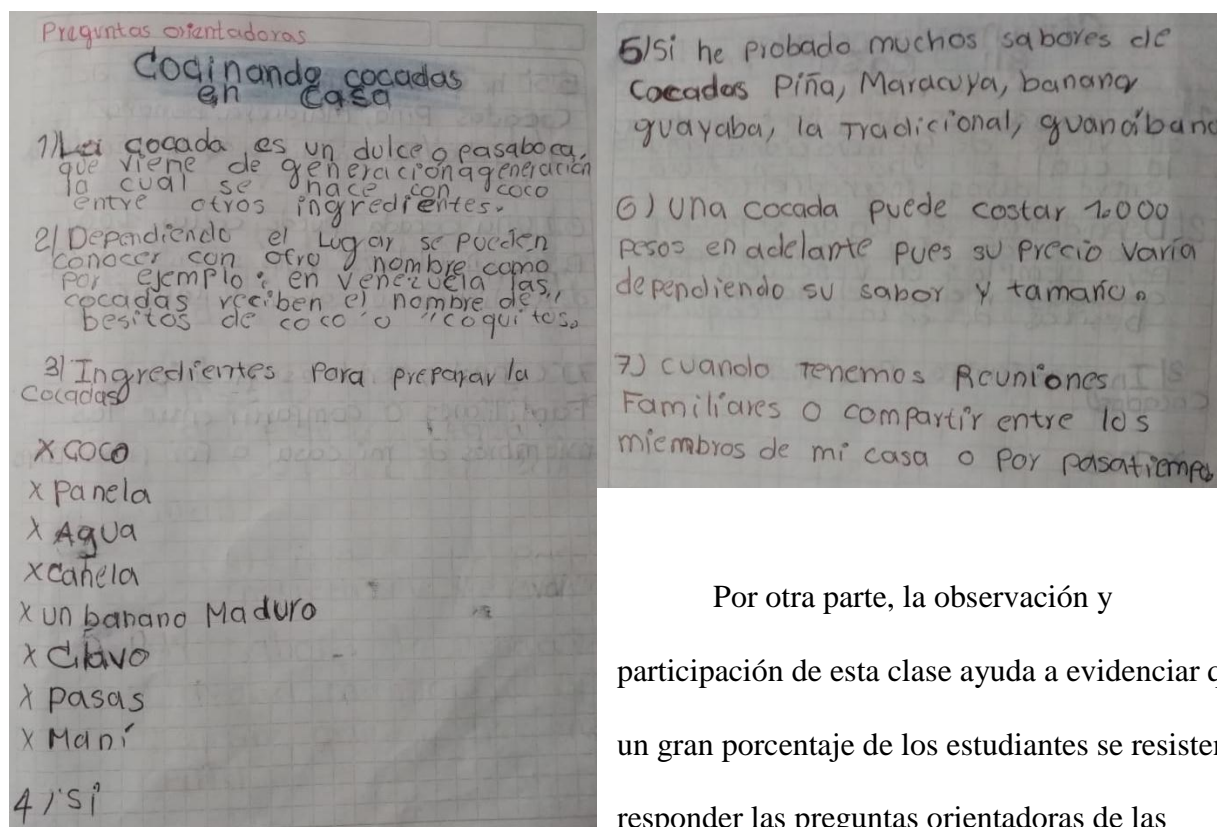 Preguntas orientadoras
Cocinando cocadas
en casa
1) La cocada es un dulce o pasaboca,
que viene de generacion a generación
la cual se hace con coco
entre otros ingredientes.
2) Dependiendo el Lugar se pueden
conocer con otro nombre como
por ejemplo: en Venezuela las
cocadas reciben el nombre de "
besitos de coco" o "coquitos.
3) Ingredientes para preparar la
cocadas
x coco
x panela
x Agua
x canela
x un banano Maduro
x Clavo
x pasas
x Maní
4) si
5) Si he probado muchos sabores de
cocadas Piña, Maracuya, banana
guayaba, la Tradicional, guanában
6) una cocada puede costar 1.000
pesos en adelante pues su precio varía
dependiendo su sabor y tamaño.
7) cuando Tenemos Reuniones
Familiares o compartir entre los
miembros de mi casa o por pasatiempo
Por otra parte, la observación y
participación de esta clase ayuda a evidenciar q
un gran porcentaje de los estudiantes se resisten
responder las preguntas orientadoras de las